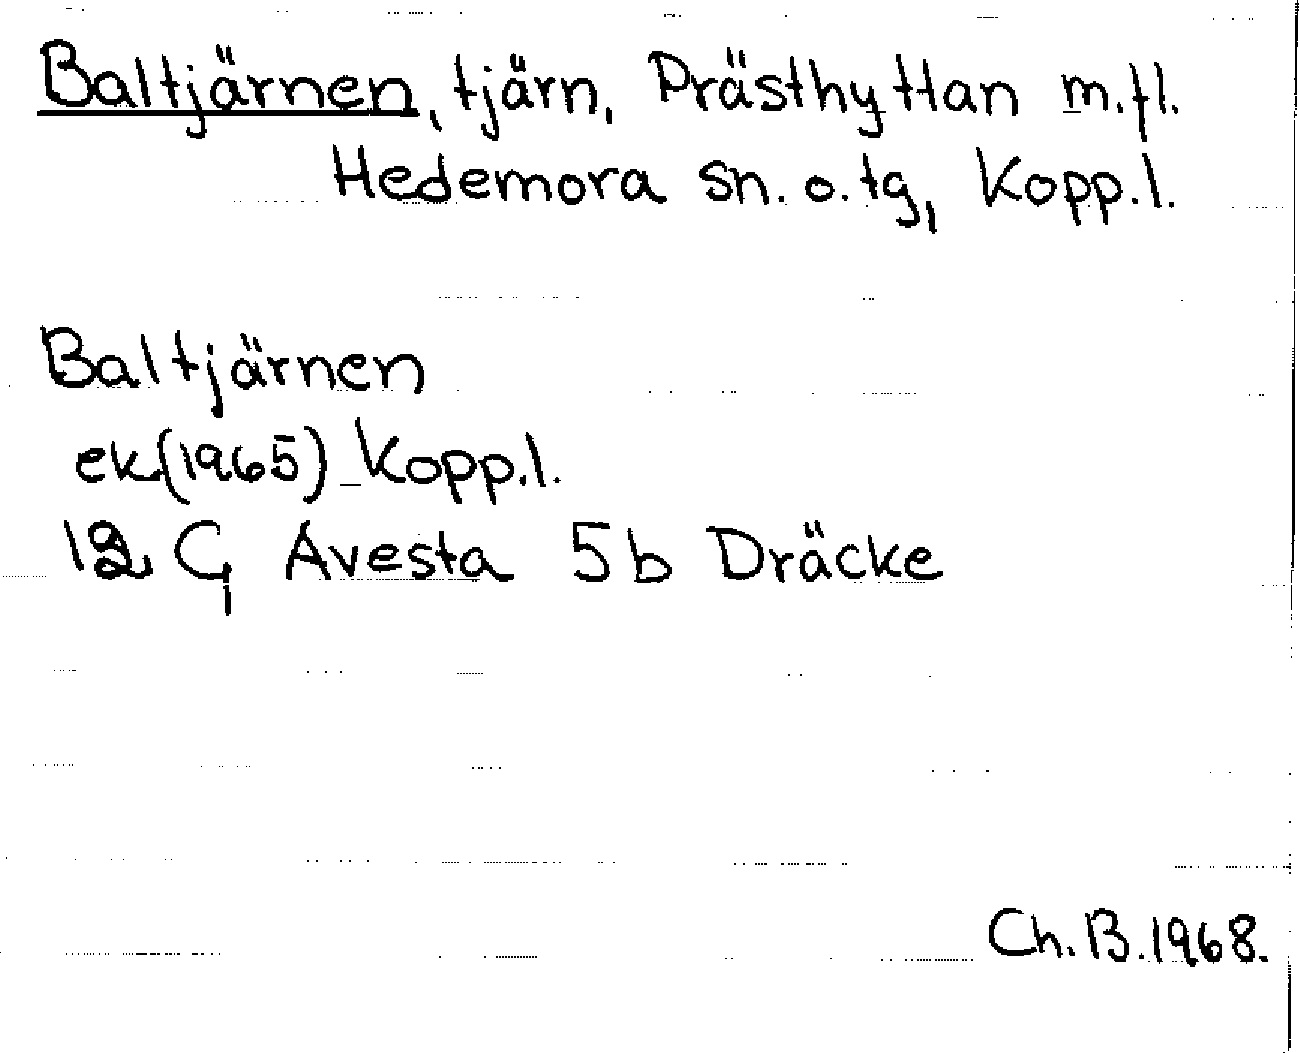 Baltjärnen, tjärn, Prästhyttan m.fl.
Hedemora sn. o. tg, Kopp.l.
Baltjärnen
ek(1965) Kopp.l.
12 G, Avesta 5b Dräcke
Ch.B.1968.